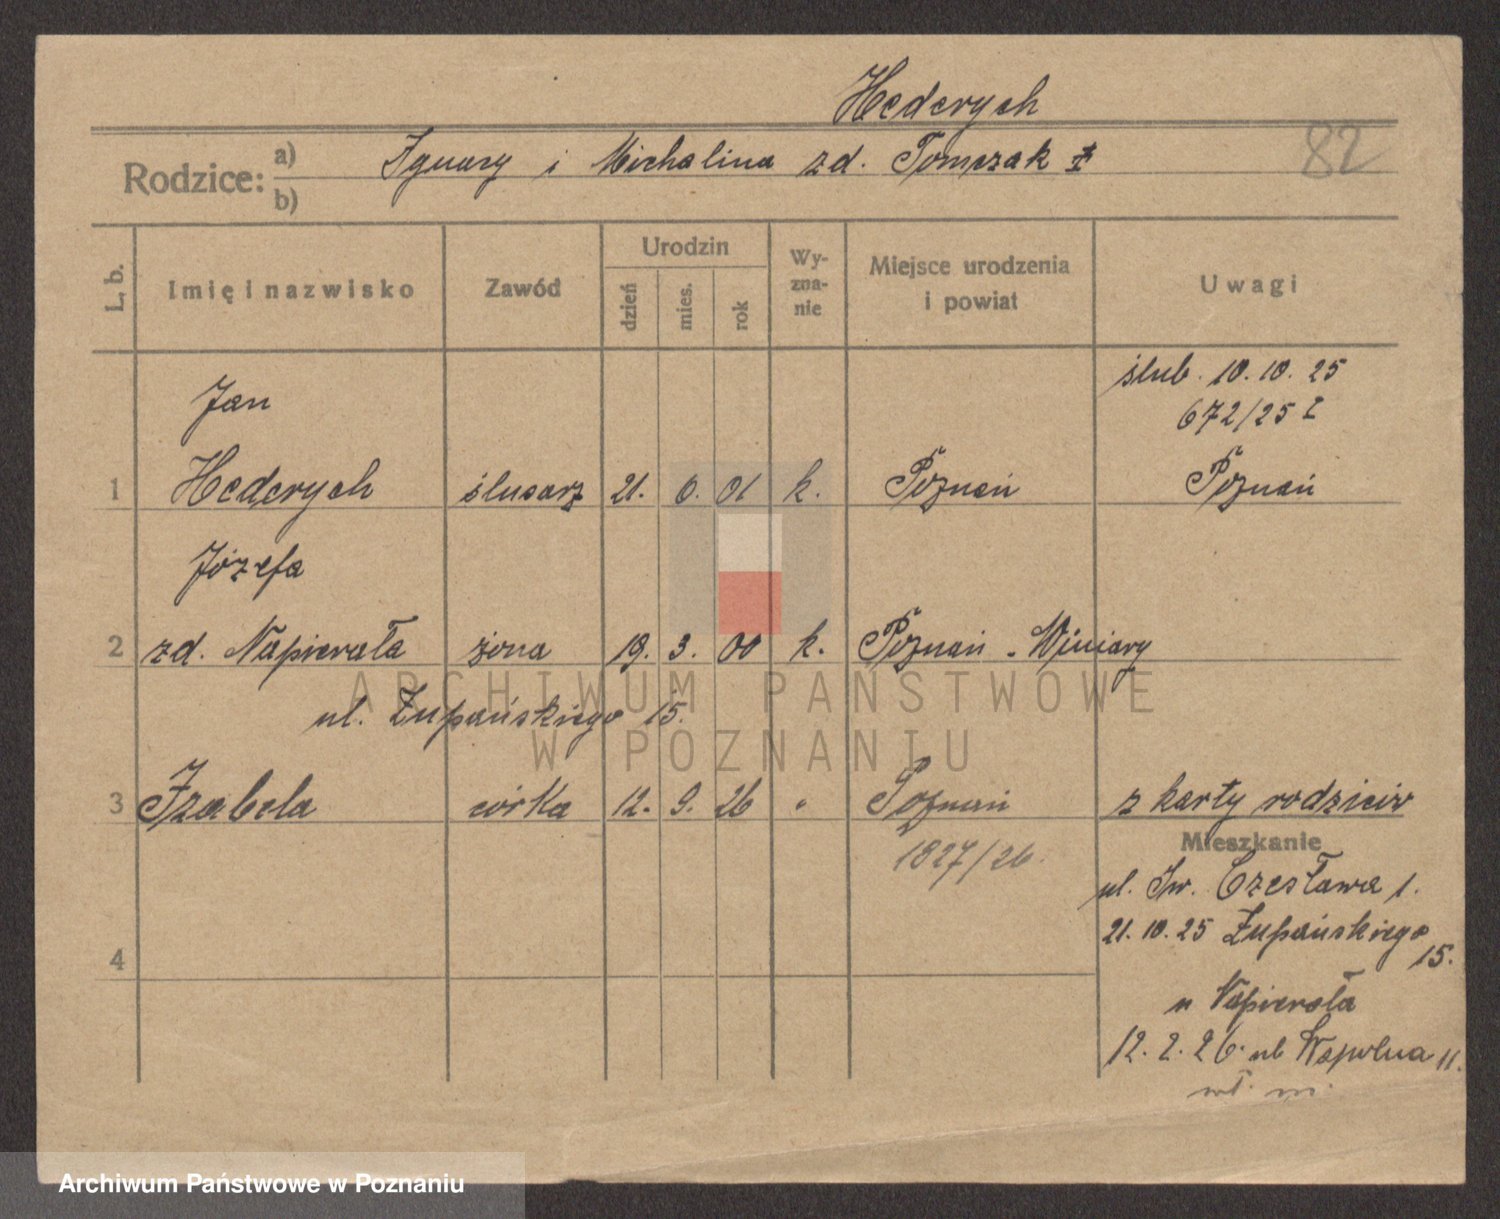 Hederych
82
Rodzice: a) Ignacy i Michalina zd. Tomczak
b)
L. b. Imię i nazwisko Zawód Urodzin dzień mies. rok Wy-zna-nie Miejsce urodzenia i powiat Uwagi
ślub. 10. 10. 25
672/25 I
Jan
1 Hederych ślusarz 21. 6. 01 k. Poznań Poznań
Józefa
2 zd. Napierała żona 19. 3. 00 k. Poznań - Winiary
ul. Żupańskiego 15.
3 Izabela córka 12. 9. 26 " Poznań z karty rodziców
1827/26.
Mieszkanie
ul. Św. Czesława 1.
21. 10. 25 Żupańskiego
15.
4
u Napierała
12. 2. 26. ul Wspólna 11.
wł. m.
ARCHIWUM PAŃSTWOWE
W POZNANIU
Archiwum Państwowe w Poznaniu